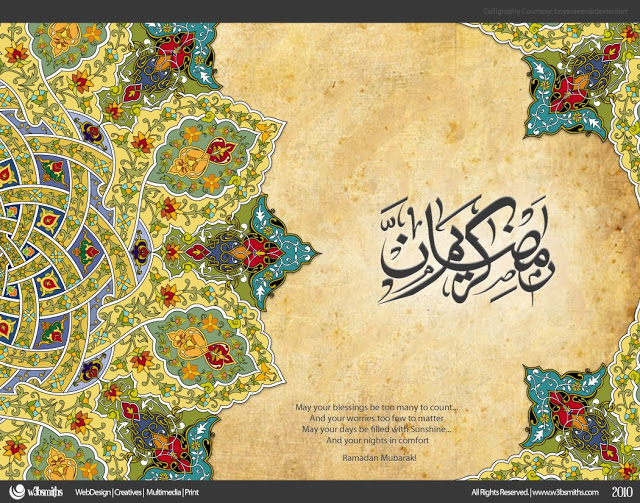 رمضان كريم
May your blessings be too many to count...
And your worries too few to matter.
May your days be filled with Sunshine...
And your nights in comfort
Ramadan Mubarak!
w3bsmiths WebDesign | Creatives | Multimedia | Print All Rights Reserved. | www.w3bsmiths.com 2010